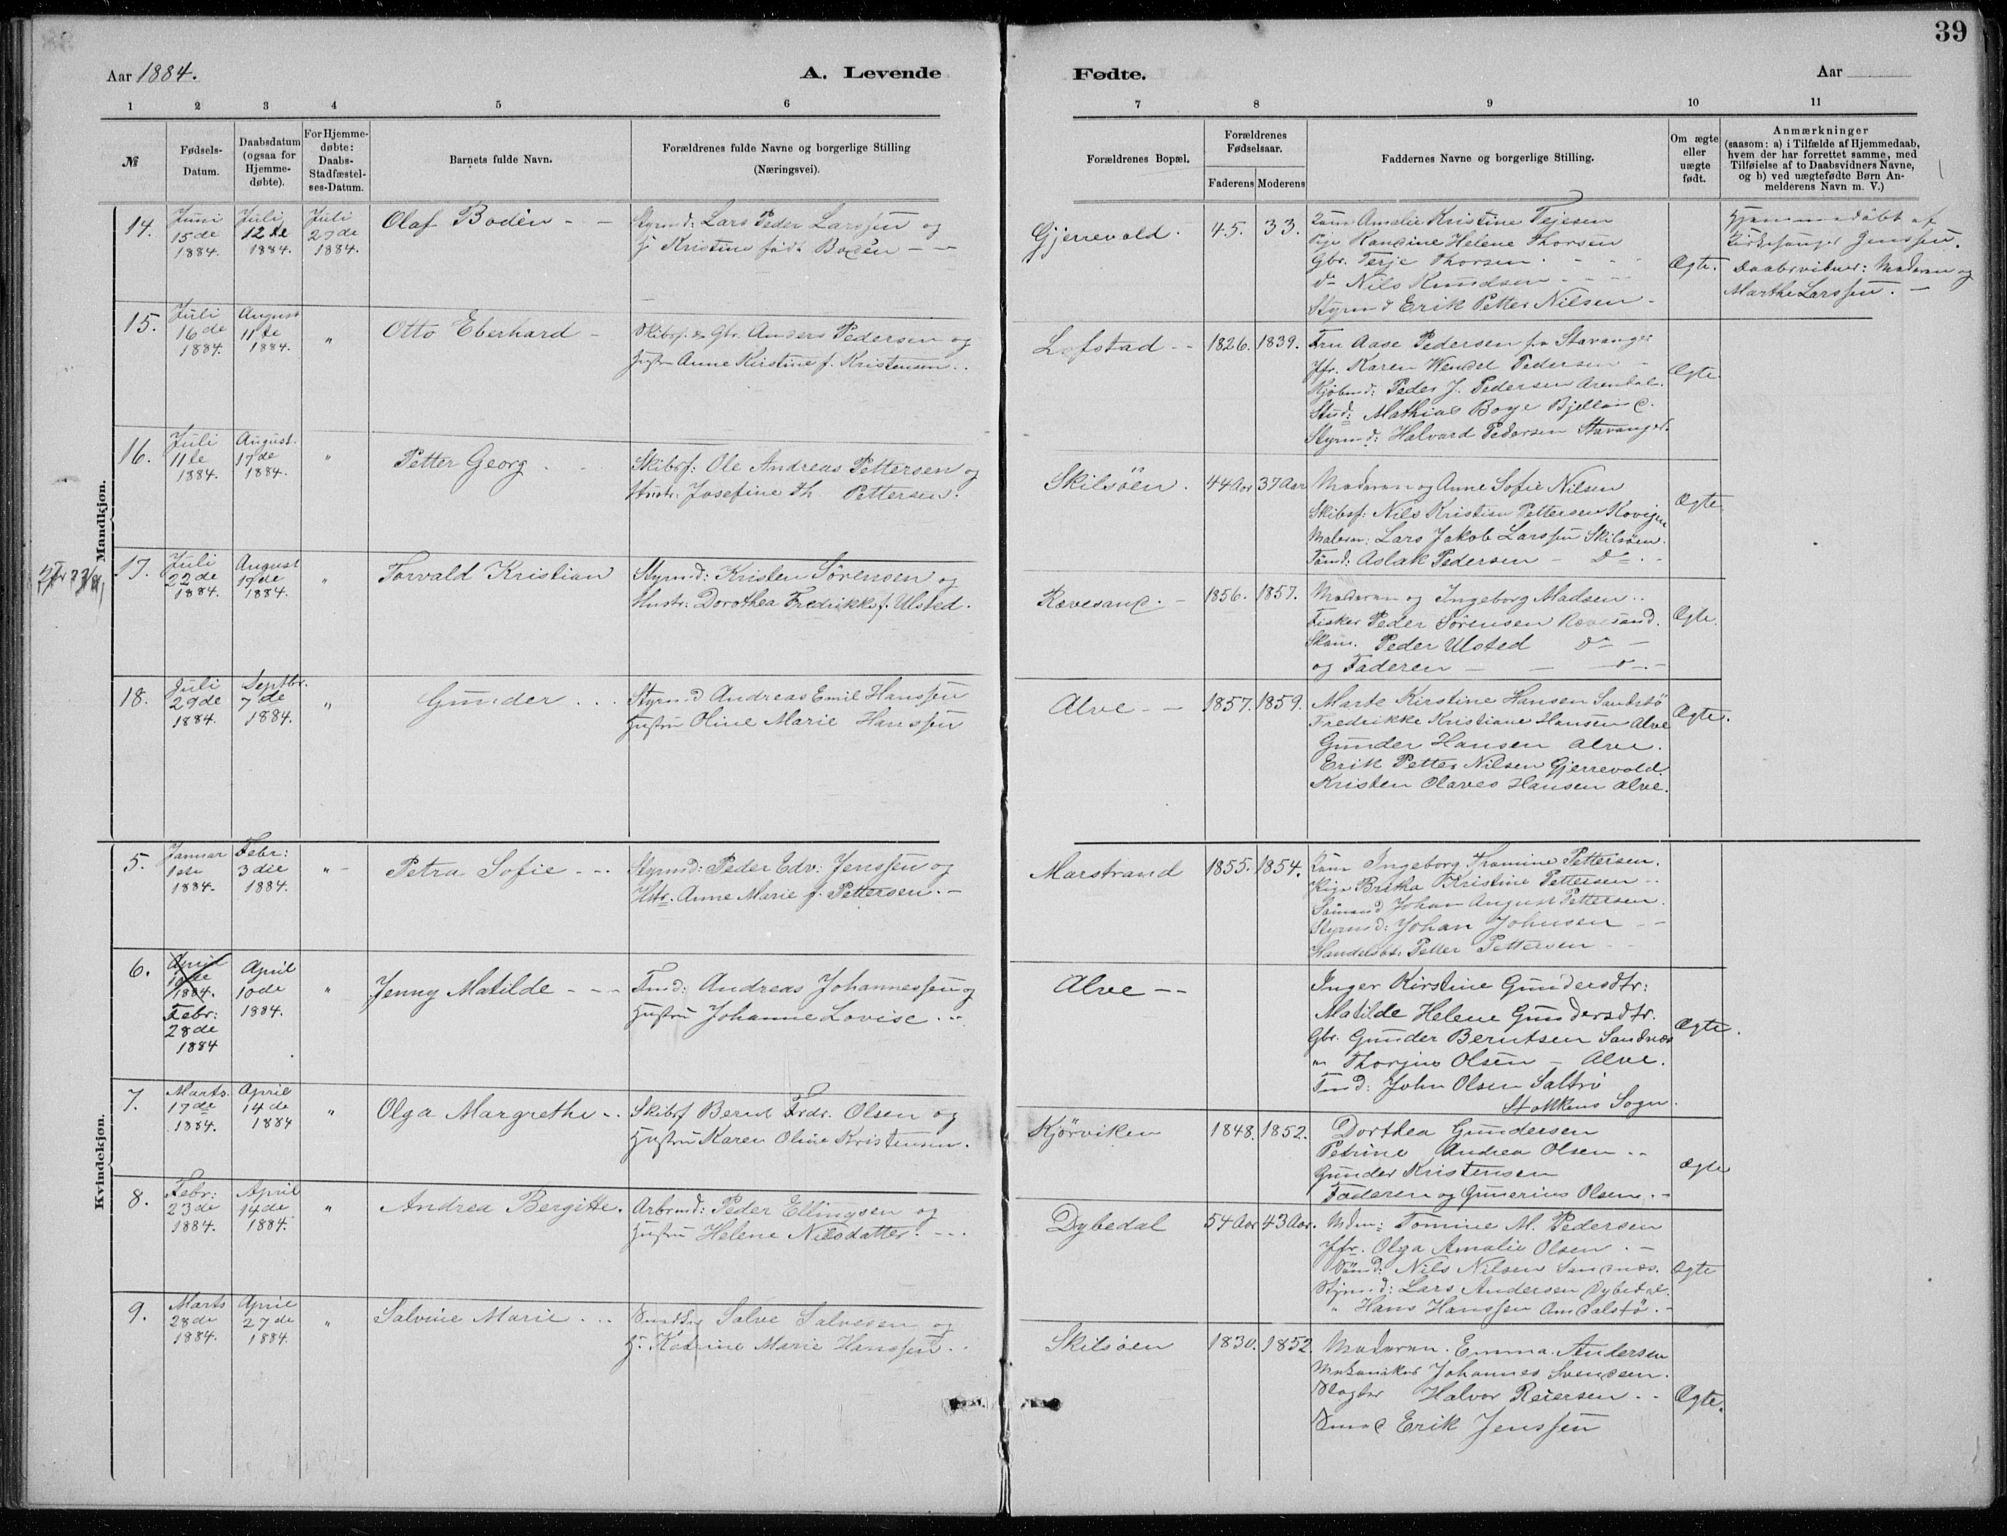 39
Aar 1884.
A. Levende
Fødte.
Aar
1 2 3 4 5 6 7 8 9 10 11
№
Fødsels-
Datum.
Daabsdatum
(ogsaa for
Hjemme-
døbte).
For Hjemme-
døbte:
Daabs-
Stadfæstel-
ses-Datum.
Barnets fulde Navn.
Forældrenes fulde Navne og borgerlige Stilling
(Næringsvei).
Forældrenes Bopæl.
Forældrenes
Fødselsaar.
Faderens Moderens
Faddernes Navne og borgerlige Stilling.
Om ægte
eller
uægte
født.
Anmærkninger
(saasom: a) i Tilfælde af Hjemmedaab,
hvem der har forrettet samme, med
Tilføielse af to Daabsvidners Navne,
og b) ved uægtefødte Børn An-
melderens Navn m. V.)
Mandkjøn.
14.
Juni
15de
1884.
Juli
12te
1884.
Juli
27de
1884.
Olaf Bodén
Styrmd: Lars Peder Larssen og
H. Kristine født Bodén
Gjerrevold.
45. 33.
Amalie Kristine Tejesen
Pige Kandine Helene Thorsen
Gbr. Terje Thorsen.
do Nils Knudsen
Styrmd Erik Petter Nilsen
Ægte.
Hjemmedøbt af
Kirkesanger Jenssen.
Daabsvidner: Moderen og
Marthe Larssen.
15.
Juli
16de
1884.
August
11te
1884.
"
Otto Eberhard
Skibsf. & Gbr. Anders Pedersen og
Hustru Anne Kirstine f. Kristensen.
Lofstad
1826. 1839.
Fru Aase Pedersen fra Stavanger
Jfr. Karen Wendel Pedersen
Kjøbmd: Peder J. Pedersen Arendal.
Stud: Mathias Boye Bjelland.
Styrmd: Halvard Pedersen Stavanger.
Ægte.
16.
Juli
11te
1884.
August.
17de
1884.
"
Petter Georg
Skibsf: Ole Andreas Pettersen og
Hustr. Josefine Th Pettersen.
Skilsöen.
44 Aar 37 Aar
Moderen og Anne Sofie Nilsen
Skibsf: Nils Kristian Pettersen Kovigen
Malern: Lars Jakob Larssen Skilsöen.
Tömd: Aslak Pedersen do
Ægte
17.
Juli
22de
1884.
August
19de
1884.
"
Torvald Kristian
Styrmd: Kristen Sörensen og
Hustr: Dorothea Fredrikke f. Ulsted.
Rævesand.
1856. 1857.
Moderen og Ingeborg Madsen
Fisker Peder Sörensen Rævesand.
Skom. Peder Ulsted do
og Faderen do
Ægte.
18.
Juli
29de
1884.
Septbr.
7de
1884.
"
Gunder
Styrmd Andreas Emil Hanssen
Hustru Oline Marie Hanssen
Alve
1857. 1859.
Marte Kirstine Hansen Sandstö
Fredrikke Kristiane Hansen Alve
Gunder Hansen Alve.
Erik Petter Nilsen Gjerrevold.
Kristen Olaves Hansen Alve.
Ægte.
Kvindekjøn.
5.
Januar
1ste
1884.
Febr:
3die
1884.
"
Petra Sofie
Styrmd: Peder Edv: Jenssen og
Hstr. Anne Marie f. Pettersen.
Marstrand
1855. 1854.
Ingeborg Tramine Pettersen.
Pige Britha Kristine Pettersen
Sömand Johan August Pettersen.
Styrmd: Johan Johnsen
Handelsbt. Petter Pettersen
6.
April
10de
1884.
Febr:
28de
1884
April
10de
1884.
"
Jenny Matilde
Tmd: Andreas Johannessen og
Hustru Johanne Lovise
Alve
Inger Kirstine Gundersdtr:
Matilde Helene Gundersdtr.
Gbr. Gunder Berntsen Sandnæs
" Thorjus Olsen Alve.
Tmd: John Olsen Saltrö
Stokkens Sogn.
Ægte.
7.
Marts
17de
1884.
April
14de
1884
"
Olga Margrethe
Skibsf Bernt Frdr. Olsen og
Hustru Karen Oline Kristensen.
Kjörviken
1848. 1852.
Dorthea Gundersen
Petrine Andrea Olsen
Gunder Kristensen
Faderen og Gunerius Olsen.
Ægte
8.
Febr:
23de
1884.
April
14de
1884.
"
Andrea Bergitte.
Arbmd: Peder Ellingsen og
Hustru Helene Nilsdatter.
Dybedal
54 Aar 43 Aar.
Mdm: Tomine M. Pedersen
Jfr. Olga Amalie Olsen.
Sömd: Nils Nilsen Sandnæs.
Styrmd: Lars Andersen Dybedal.
" Hans Hanssen Amdalstö.
Ægte
9.
Marts
28de
1884.
April
27de
1884.
"
Salvine Marie
Salve Salvesen og
H. Katrine Marie Hanssen
Skilsöen
1830. 1852
Moderen. Emma Andersen
Mekaniker Johannes Svendsen.
Slagter Halvor Reiersen
Smed Erik Jenssen
Ægte.